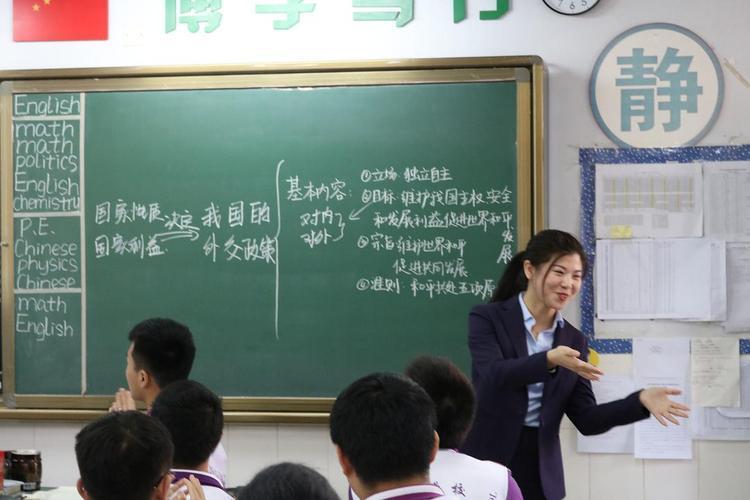 博学笃行
静
English
math
math
politics
English
chemistry
P.E.
Chinese
physics
Chinese
math
English
国家性质
国家利益
决定
我国的
外交政策
基本内容:
对内
对外
①立场:独立自主
②目标:维护我国主权,安全
和发展利益,促进世界和平
发展
③宗旨:维护世界和平
促进共同发展
④准则:和平共处五项原